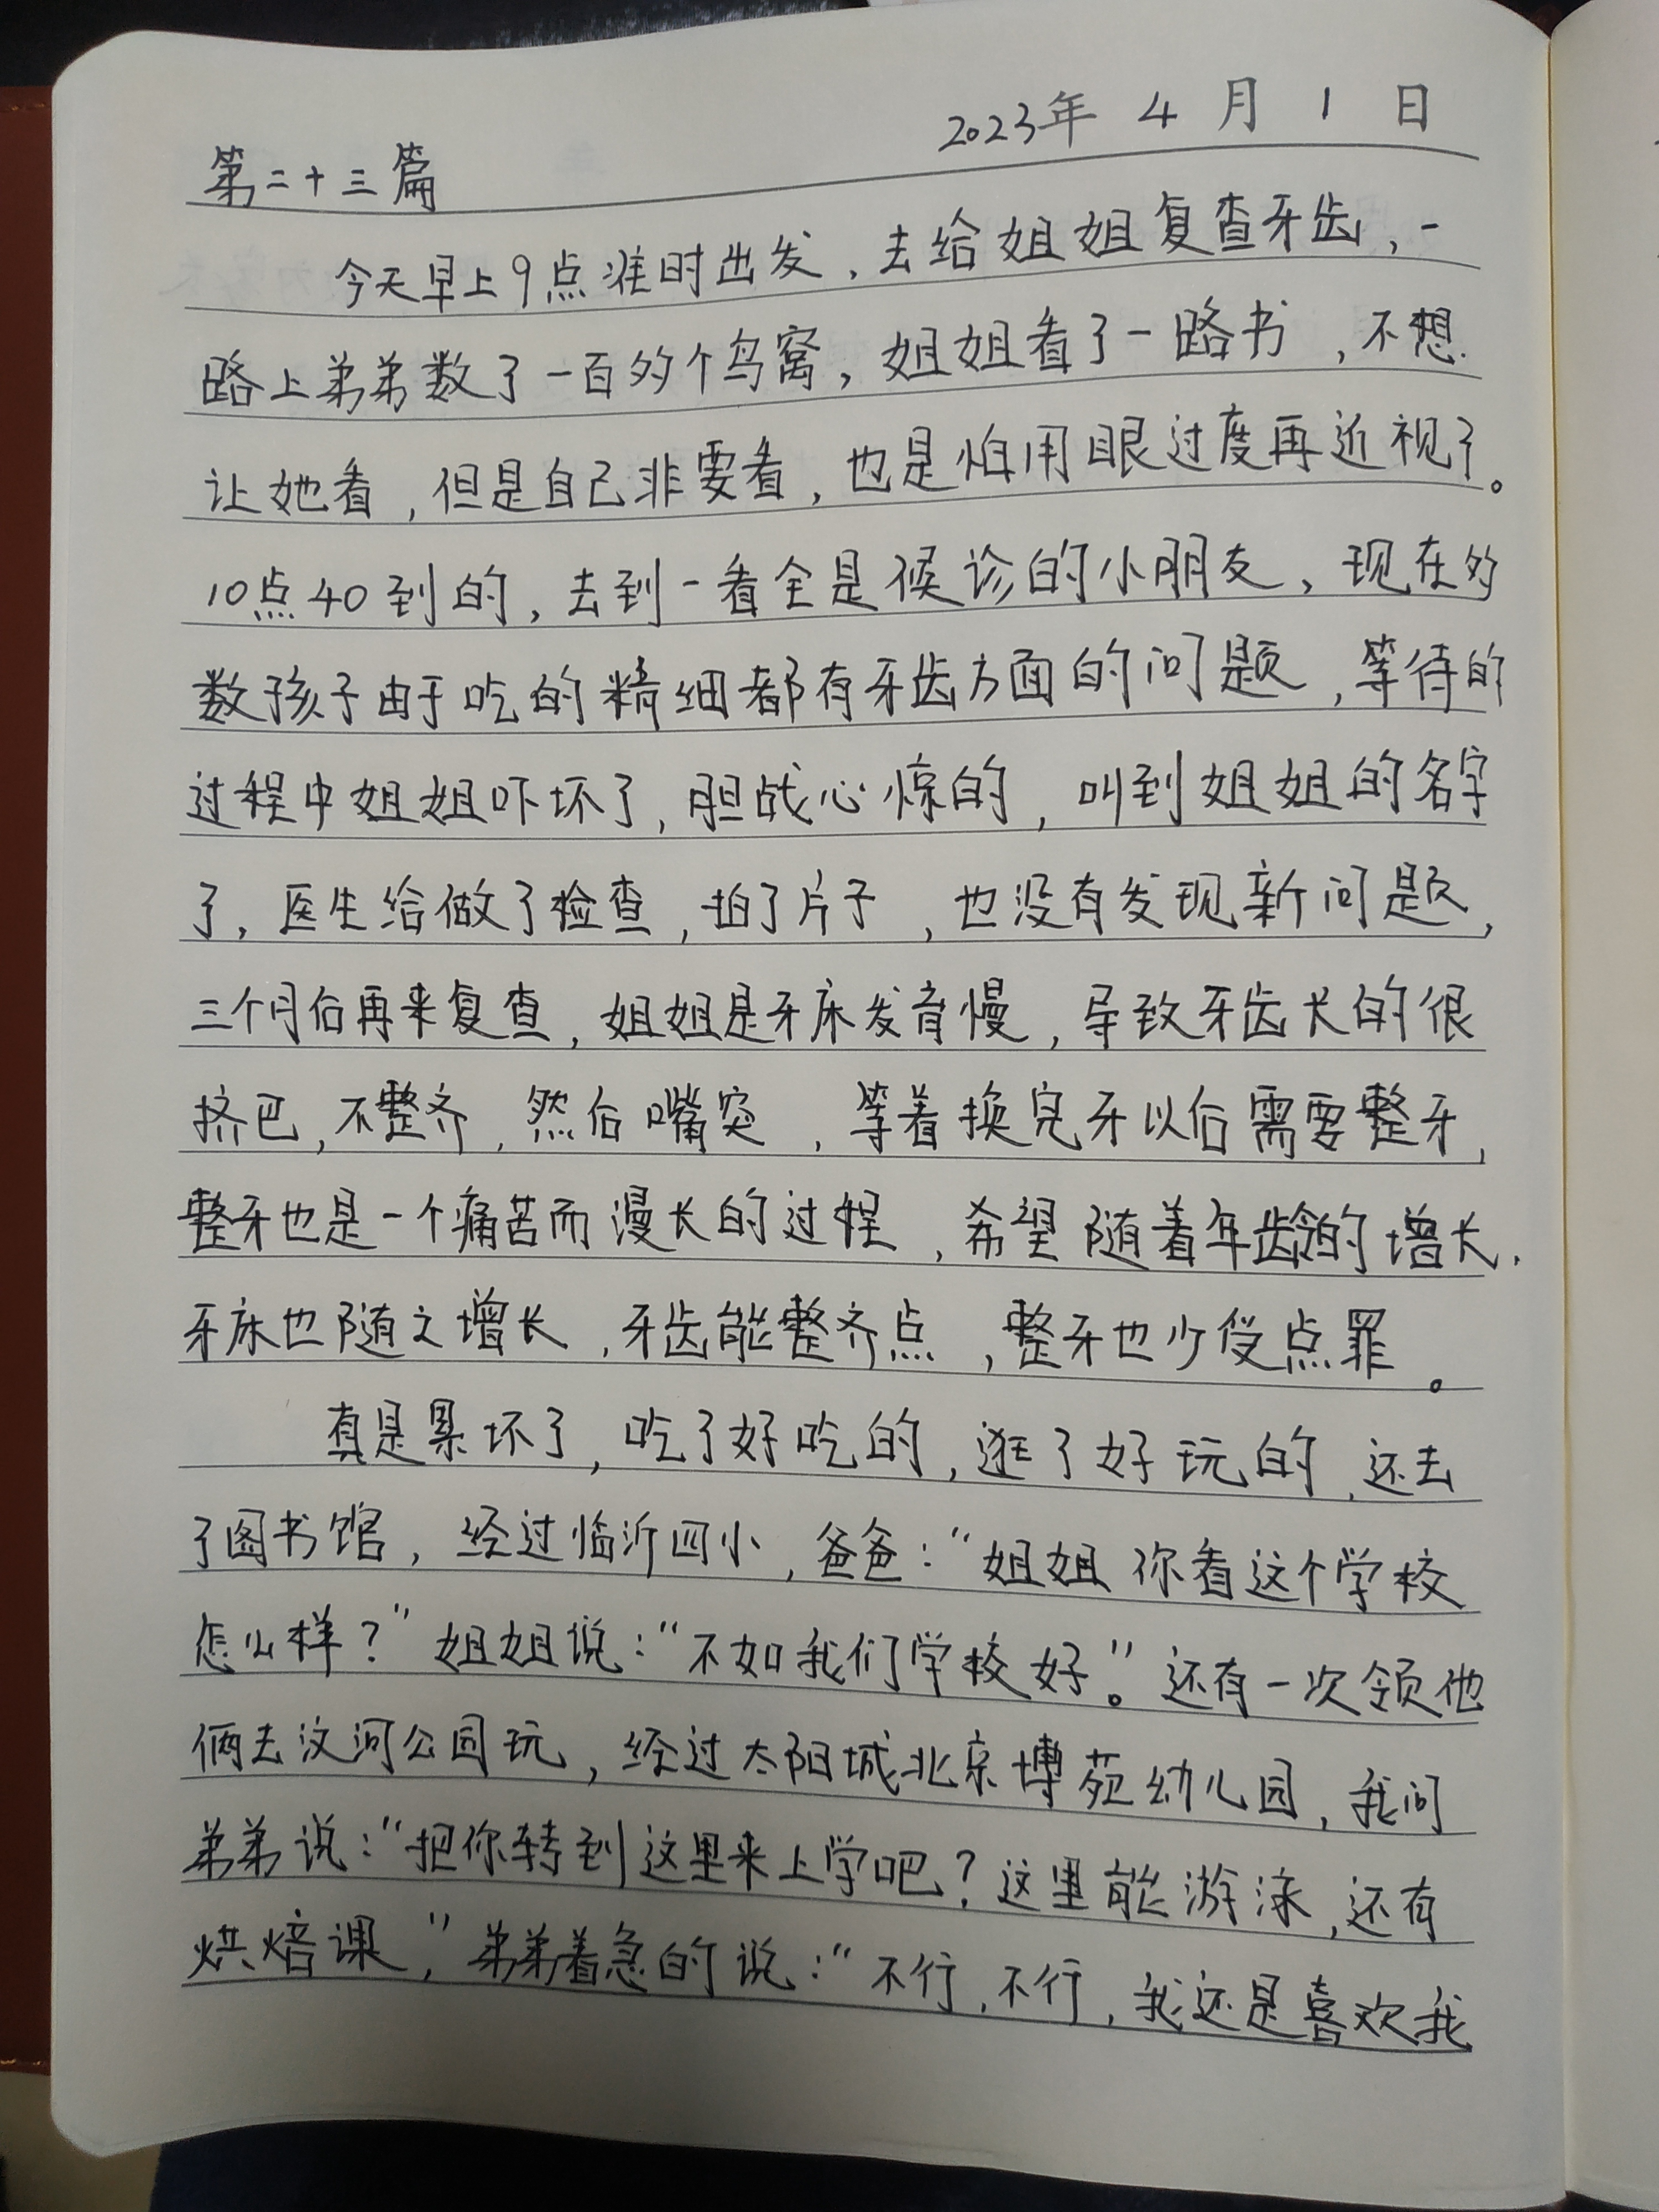 2023年 4 月 1 日
第二十三篇
今天早上9点准时出发，去给姐姐复查牙齿，一
路上弟弟数了一百多个鸟窝，姐姐看了一路书，不想
让她看，但是自己非要看，也是怕用眼过度再近视了。
10点40到的，去到一看全是候诊的小朋友，现在多
数孩子由于吃的精细都有牙齿方面的问题，等待的
过程中姐姐吓坏了，胆战心惊的，叫到姐姐的名字
了，医生给做了检查，拍了片子，也没有发现新问题，
三个月后再来复查，姐姐是牙床发育慢，导致牙齿长的很
挤巴，不整齐，然后嘴突，等着换完牙以后需要整牙，
整牙也是一个痛苦而漫长的过程，希望随着年龄的增长，
牙床也随之增长，牙齿能整齐点，整牙也少受点罪。
真是累坏了，吃了好吃的，逛了好玩的，还去
了图书馆，经过临沂四小，爸爸：“姐姐你看这个学校
怎么样？”姐姐说：“不如我们学校好。”还有一次领他
俩去汶河公园玩，经过太阳城北京博苑幼儿园，我问
弟弟说：“把你转到这里来上学吧？这里能游泳，还有
烘焙课，”弟弟着急的说：“不行，不行，我还是喜欢我